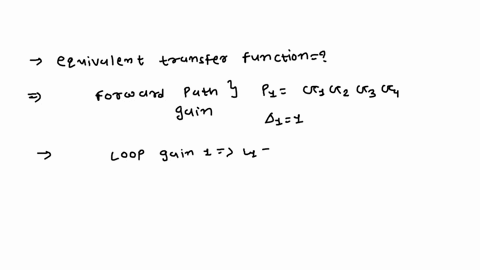 → equivalent transfer function=?
⇒ forward path } P1= G1 G2 G3 G4
gain
Δ1=1
→ Loop gain 1 => L1 -